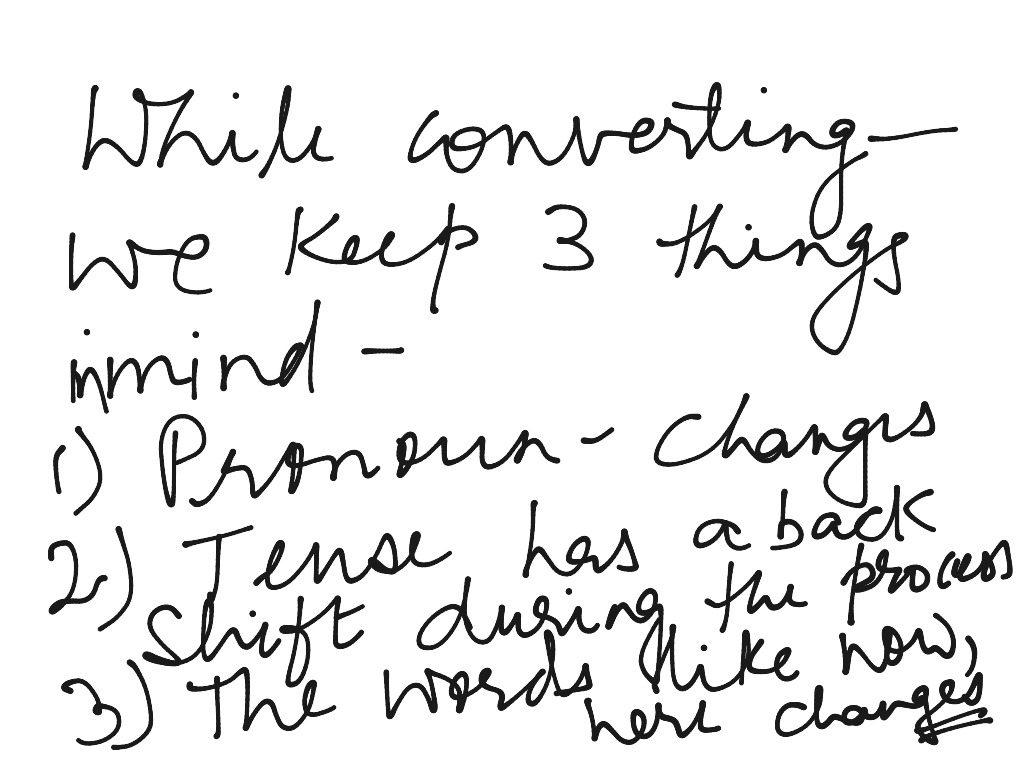 While converting—
we keep 3 things
inmind –
1) Pronoun - changes
2) Tense has a back
shift during the process
3) The words like now,
here changes